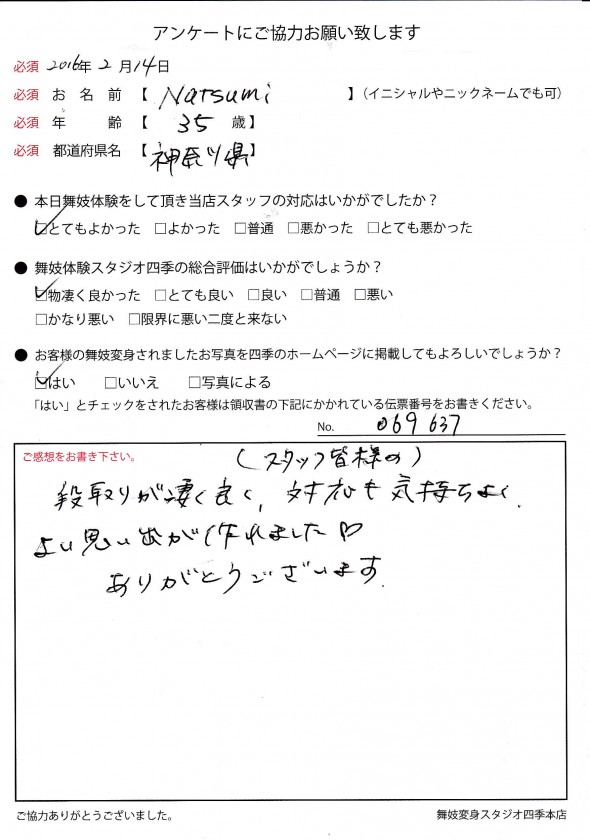 アンケートにご協力お願い致します
必須 2016年 2月14日
必須 お名前 【 Natsumi 】(イニシャルやニックネームでも可)
必須 年齢 【 35 歳】
必須 都道府県名 【神奈川県】
● 本日舞妓体験をして頂き当店スタッフの対応はいかがでしたか？
☑とてもよかった □よかった □普通 □悪かった □とても悪かった
● 舞妓体験スタジオ四季の総合評価はいかがでしょうか？
☑物凄く良かった □とても良い □良い □普通 □悪い
□かなり悪い □限界に悪い二度と来ない
● お客様の舞妓変身されましたお写真を四季のホームページに掲載してもよろしいでしょうか？
☑はい □いいえ □写真による
「はい」とチェックをされたお客様は領収書の下記にかかれている伝票番号をお書きください。
No. 069637
ご感想をお書き下さい。
(スタッフ皆様の)
段取りが凄く良く、対応も気持ちよく、
よい思い出が作れました♡
ありがとうございます。
ご協力ありがとうございました。
舞妓変身スタジオ四季本店